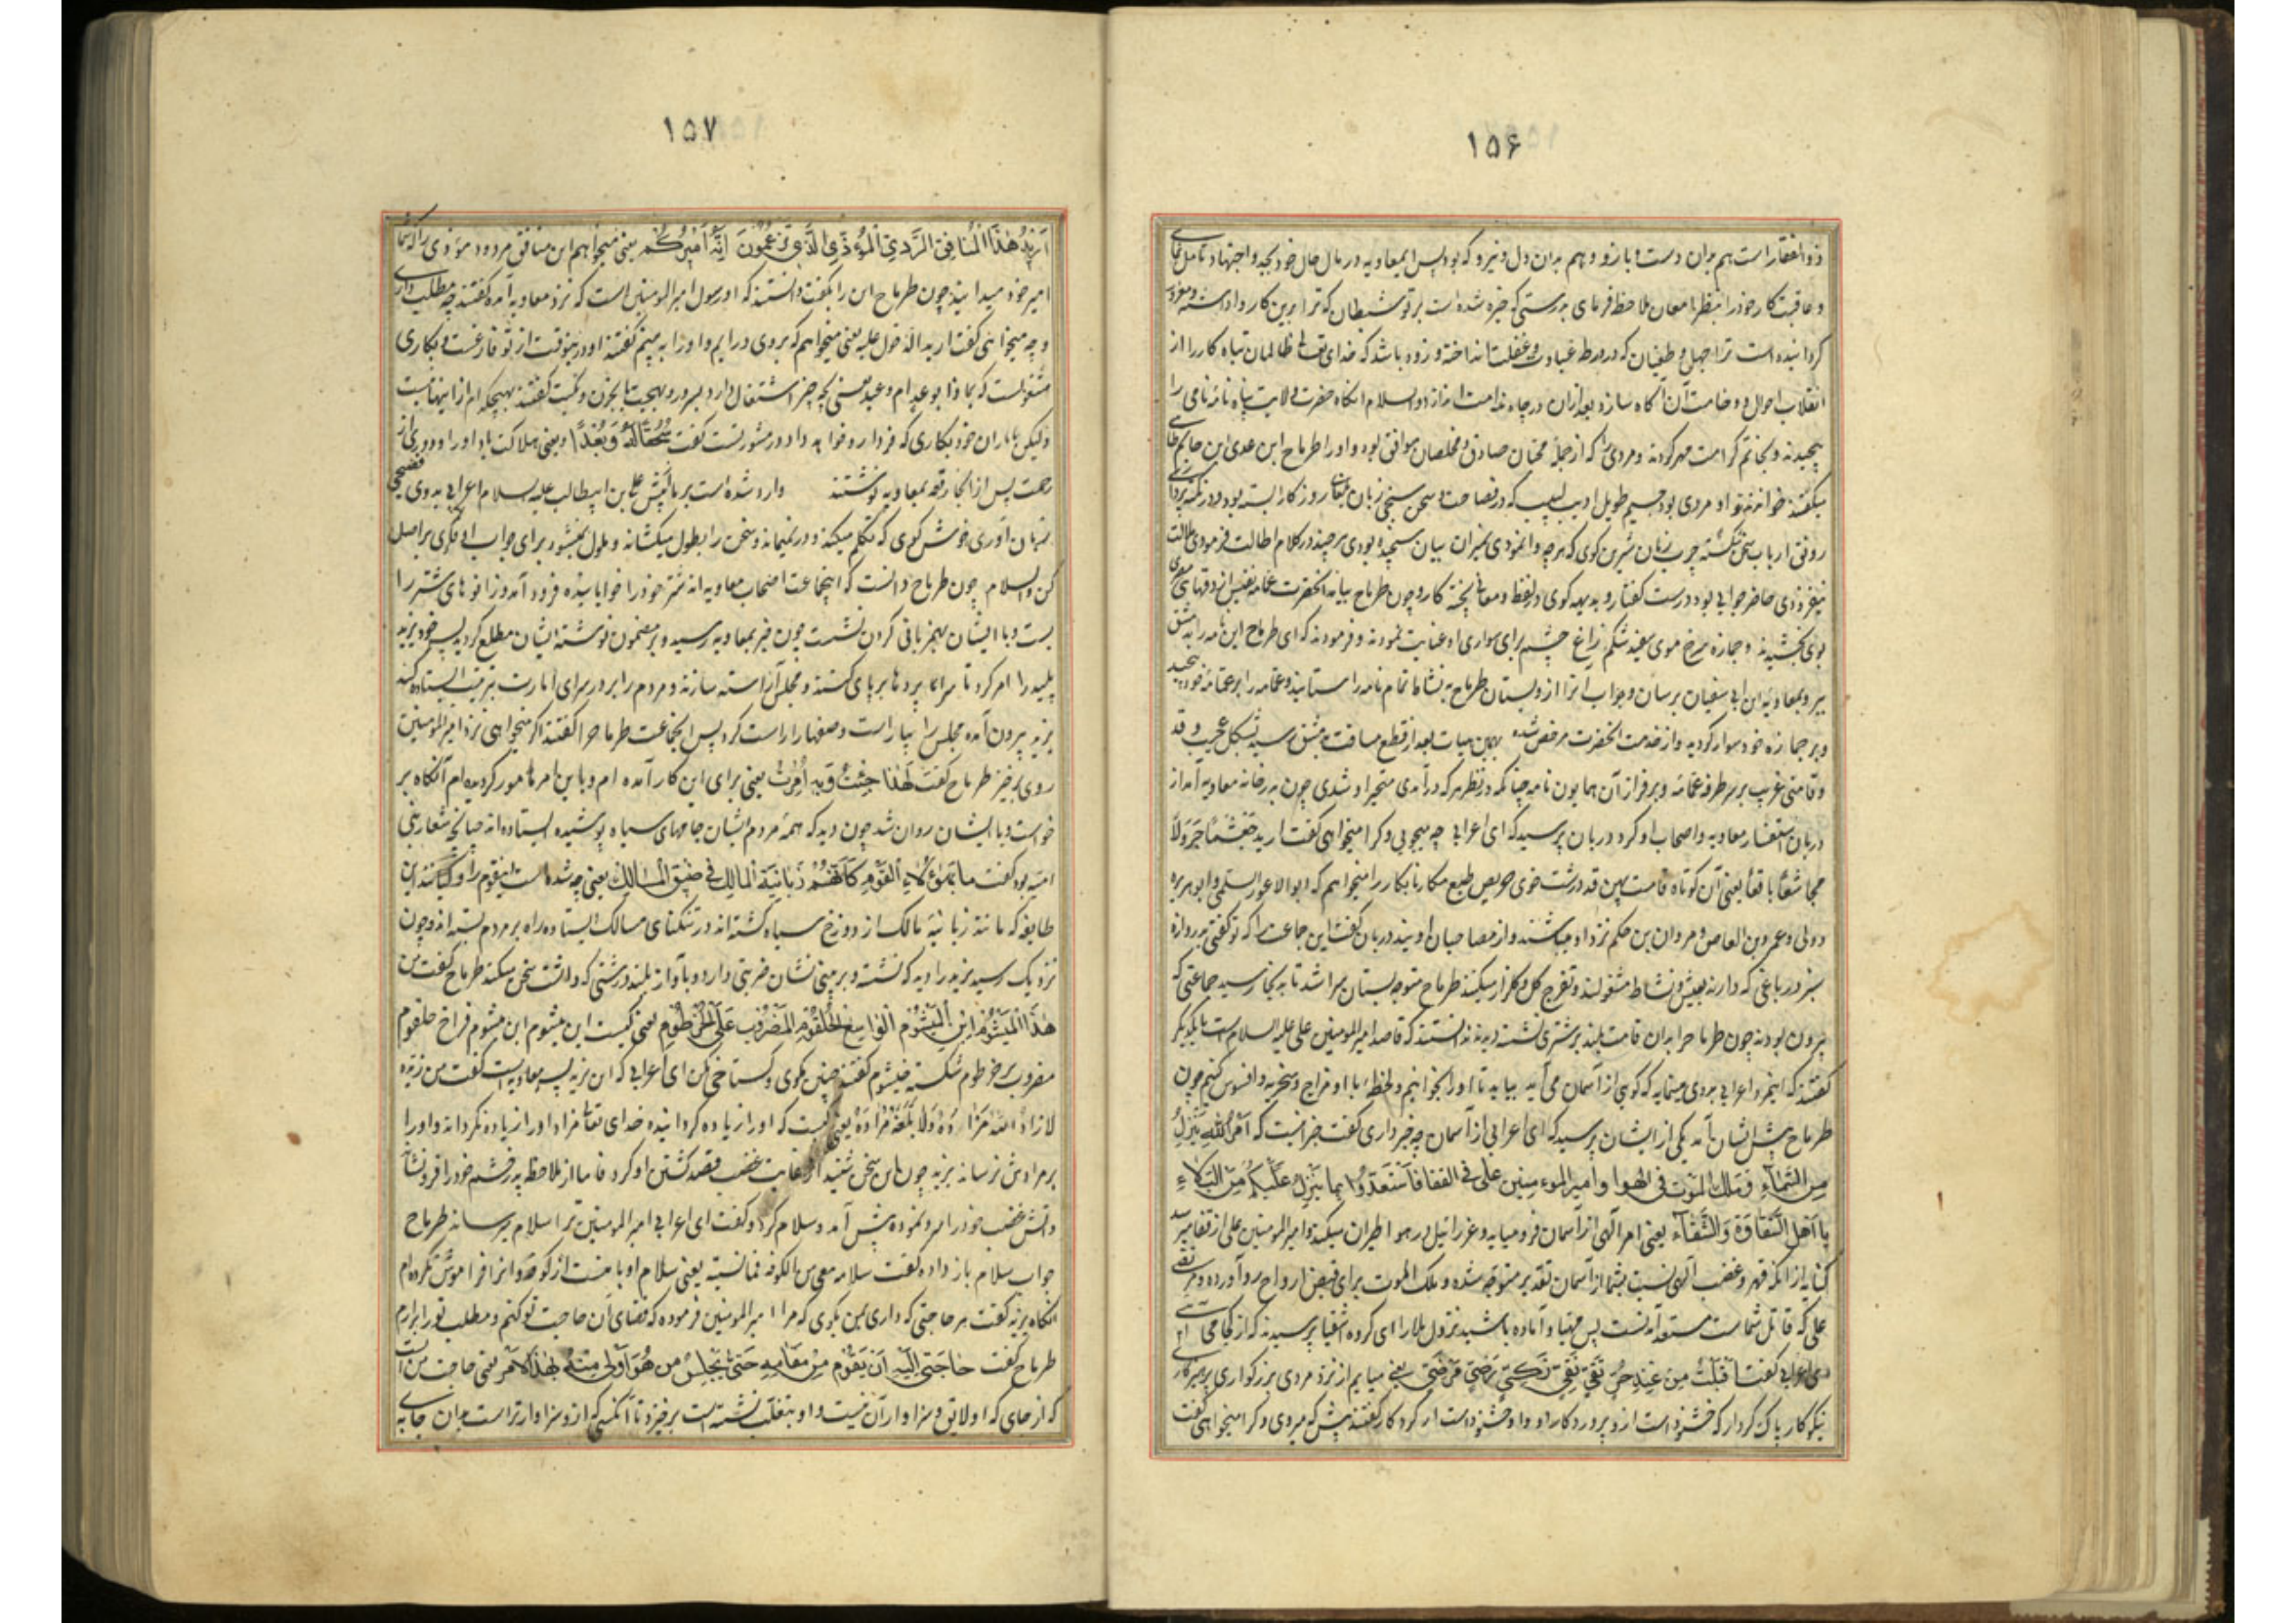 ۱۵۶
ذوالفقار است هم بران دست و بازو و هم بران دل و نیرو که بود پس ای معاویه در مال حال خود بجد و اجتهاد تامل نمای
و عاقبت کار خود را بنظر با معان ملاحظه فرمای بدرستی که چیره شده است بر تو شیطان که ترا برین کار واداشته و مغرور
کردانیده است ترا جهل و طغیان که در ورطه غباوت و غفلت انداخته و زود باشد که خدای تعالی ظالمان تباه کار را از
انقلاب احوال و وخامت آن آگاه سازد بعد ازان در چاه ندامت اندازد والسلام انکاه حضرت ولایت پناه نامهٔ نامی را
پیچیدند و بخاتم کرامت مهر کردند و مردی را که از جملهٔ محبان صادق و مخلصان موافق بود و او را طرماح ابن عدی ابن حاتم طائی
میکفتند خواندند و او مردی بود جسیم طویل ادیب لبیب که در فصاحت و سخن سنجی زبان روزکار بسته بود و در نکته پردازی
رونق ارباب سخن شکسته چرب زبان شیرین کوی که هرچه وانمودی بمیزان بیان سنجیده بودی هرچند در کلام اطالت فرمودی ملالت
نیفزودی حاضر جوابی بود درست کفتار و بدیهه کوی در لفظ و معانی پخته کار و چون طرماح بیامد آنحضرت عمامه نفیس از دقهای مصری
بوی بخشیدند و جمازه سرخ موی سفید شکم زاغ چشم برای سواری او عنایت نمودند و فرمودند که ای طرماح این نامه را به دمشق
ببر و بمعاویه ابن ابی سفیان برسان و جواب آنرا از و بستان طرماح به نشاط تمام نامه را ستانید و عمامه را بر عمامهٔ خود پیچید
و بر جمازه خود سوار کردید و از خدمت آنحضرت مرخص شده بهمین هیات بعد از قطع مسافت بدمشق رسید بشکل عجیب و قد
و قامتی غریب بر سر طرفه عمامه و بر فراز آن همایون نامه چنانکه در نظر هر که درآمدی متحیر او شدی چون بدر خانه معاویه آمد از
دربان استفسار معاویه و اصحاب او کرد دربان پرسید که ای اعرابی چه میجویی و کرا میخواهی کفت ارید جعشما جرولا
مجاشعا باقعا یعنی آن کوتاه قامت پهن قد درشت خوی حریص طبع مکار نابکار را میخواهم که ابوالاعور السلمی و ابوهریره
دولی و عمرو بن العاص و مروان بن حکم نزد او میباشند و از مصاحبان اویند دربان کفت این جماعت را که تو کفتی بدروازه
سبز در باغی که دارند بعیش و نشاط مشغولند و تفرج کل و کلزار میکنند طرماح متوجه بستان سرا شد تا به آنجا رسید جماعتی که
بیرون بودند چون طرماح را بدان قامت بلند بر شتری نشسته دیدند دانستند که قاصد امیرالمومنین علی علیه السلام است با یکدیکر
کفتند که اینمرد اعرابی بدوی مینماید که کویی از آسمان می آید بیایید تا او را بخوانیم و لحظهٔ با او مزاح و سخریه و افسوس کنیم چون
طرماح پیش ایشان آمد یکی از ایشان پرسید که ای اعرابی از آسمان چه خبر داری کفت خبر اینست که اَمْرُ اللهِ يَنْزِلُ
مِنَ السَّمآءِ وَمَلَكُ الْمَوْتِ فِي الْهَوا وَاَمِيرُ الْمُوءمِنِين علی فی القفا فَاسْتَعَدُّوا بِما يَنْزِلُ عَلَيْكُمْ مِنَ الْبَلاءِ
يا اَهْلَ الشَّقاوَةِ وَالشِّقآء یعنی امر الهی از آسمان فرو میاید و عزرائیل در هوا طیران میکند و امیرالمومنین علی از قفا میرسد
کنایه از آنکه قهر و غضب الهی نسبت بشما از آسمان تقدیر متوجه شده و ملک الموت برای قبض ارواح رو آورده و
علی که قاتل شماست مستعد آنست پس مهیا و آماده باشید نزول بلا را ای کروه اشقیا پرسیدند که از کجا می آیی
ای اعرابی کفت اَقْبَلْتُ مِنْ عِنْدِ حُرٍّ تَقِيٍّ نَقِيٍّ زَكِيٍّ رَضِيٍّ مَرْضِيٍّ یعنی میایم از نزد مردی بزرکواری پرهیزکار
نیکوکار پاک کردار که خشنود است از و پروردکار او و او خشنود است از کردکار کفتند پیش که میروی و کرا میخواهی کفت
۱۵۷
اُرِيدُ هٰذَا الْمُنافِقَ الرَّدِيَّ الْمُوءذِيَ الَّذِي تَزْعُمُونَ اِنَّهُ اَمِيرُكُمْ یعنی میخواهم این منافق مردود موذی را که شما
امیر خود میدانید چون طرماح این را بکفت دانستند که او رسول امیرالمومنین است که نزد معاویه آمده کفتند چه مطلب داری
و چه میخواهی کفت ارید الدخول علیه یعنی میخواهم که بروی درایم و او را به بینم کفتند او درینوقت از تو فارغست و بکاری
مشغولست که
ولیکن بایاران خود بکاری که فردا رو خواهد داد در مشورتست کفت سُحْقًا لَهُ وَبُعْدًا یعنی هلاکت باد او را و دوری از
رحمت پس از آنجا رقعه بمعاویه نوشتند وارد شده است بر ما از پیش علی بن ابیطالب علیه السلام اعرابی بدوی فصیحی
زبان آوری خوش کوی که تکلم میکند و درنمیماند و سخن را بطول میکشاند و ملول نمیشود برای جواب او فکری بر اصل
کن والسلام چون طرماح دانست که اینجماعت اصحاب معاویه اند شتر خود را خوابانیده فرود آمد و زانوهای شتر را
بست و با ایشان بهم زبانی کردن نشست چون خبر بمعاویه رسید و بر مضمون نوشته ایشان مطلع کردید پسر خود یزید
پلید را امر کرد تا سراپرده ها برپای کنند و مجلس آراسته سازند و مردم را بر در سرای امارت بترتیب ایستاده کنند
یزید بیرون آمده مجلس را بیاراست و صفها را راست کرد پس آنجماعت طرماح را کفتند اکر میخواهی نزد امیرالمومنین
روی برخیز طرماح کفت لِهٰذا جِئْتُ وَبِهِ اُمِرْتُ یعنی برای این کار آمده ام و با این امر مامور کردیده ام آنکاه بر
خواست و با ایشان روان شد چون دید که همه مردم ایشان جامهای سیاه پوشیده ایستاده اند چنانچه شعار بنی
امیه بود کفت ما بٰالُ هٰؤُلاءِ الْقَوْمِ كَاَنَّهُمْ زَبانِيَةُ الْمالِكِ فِي ضِيقِ الْمَسالِكِ یعنی چه شده است اینقوم را و کیانند این
طایفه که مانند زبانیهٔ مالک از دوزخ سیاه کشته اند در تنکنای مسالک ایستاده راه بر مردم بسته اند و چون
نزدیک رسید یزید را دید که نشسته و بر بینی نشان ضربتی دارد و با آواز بلند درشتی که داشت سخن میکند طرماح کفت من
هٰذَا الْمَيْشُومُ ابْنُ الْمَيْشُومِ الْواسِعُ الْحُلْقُومِ الْمَضْرُوبُ عَلَی الْخُرْطُومِ یعنی کیست این میشوم ابن میشوم فراخ حلقوم
مضروب بر خرطوم شکسته خیشوم کفتند چنین مکوی و کستاخی مکن ای اعرابی که این یزید پسر معاویه است کفت من یزید
لا زادَ اللهُ مَزادَهُ وَلا بَلَّغَهُ مُرادَهُ یعنی کیست که او را زیاده کردانیده خدای تعالی مزاد او را زیاده نکرداند و او را
بر مرادش نرساند یزید چون این سخن شنید از غایت غضب قصد کشتن او کرد فاما از ملاحظه پدر خشم خود را فرو نشانده
واتش غضب خود را فرو نموده پیش آمد و سلام کرد و کفت ای اعرابی امیرالمومنین ترا سلام میرساند طرماح
جواب سلام باز داده کفت سلامه معی من الکوفه فما نسیته یعنی سلام او با منست از کوفه و انرا فراموش نکرده ام
انکاه یزید کفت هر حاجتی که داری بمن بکوی که مرا امیرالمومنین فرموده که قضای آن حاجت تو کنم و مطلب تو را برارم
طرماح کفت حاجَتِي اِلَيْهِ اَنْ يَقُومَ مِنْ مَقامِهِ حَتّٰی يَجْلِسَ مَنْ هُوَ اَوْلٰی مِنْهُ بِهٰذَا الْاَمْرِ یعنی حاجت من آنست
که از جای که او لایق و سزاوار آن نیست و او بتغلب نشسته است برخیزد تا آنکسی که ازو سزاوارتر است بدان جای به